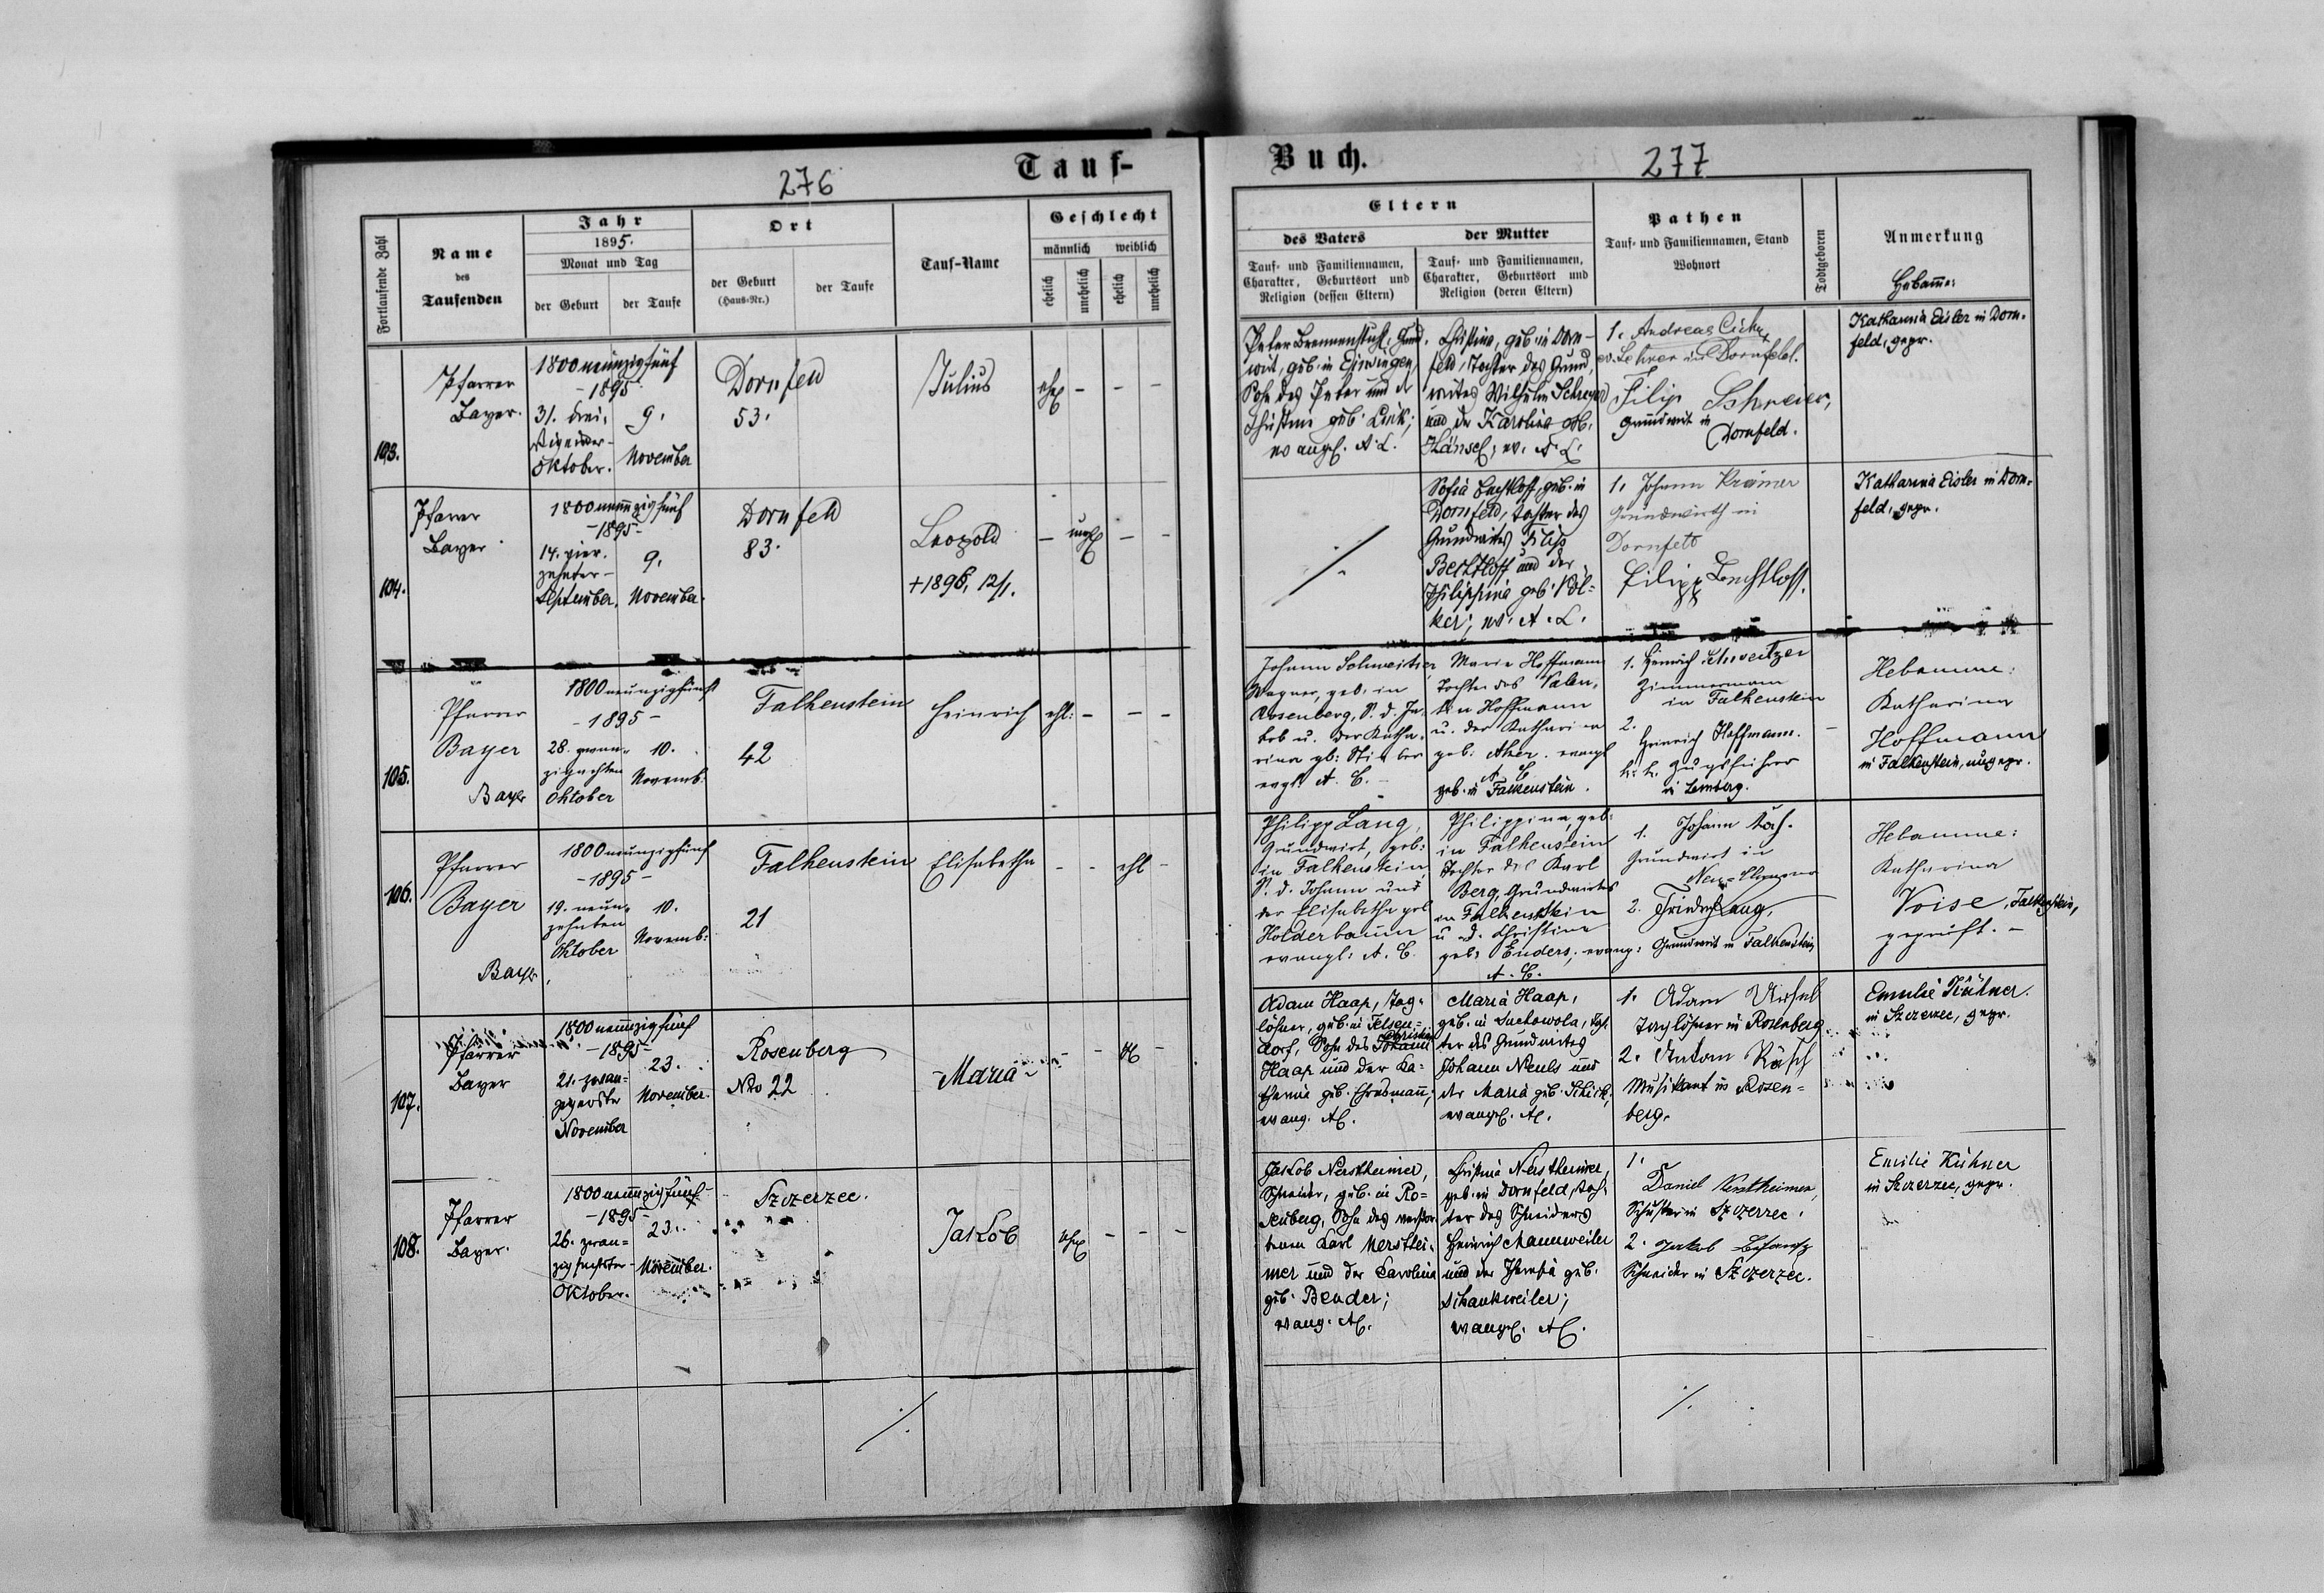 276
Tauf-
Fortlaufende Zahl
Name
des
Taufenden
Jahr
1895.
Monat und Tag
der Geburt
der Taufe
Ort
der Geburt
(Haus-Nr.)
der Taufe
Tauf-Name
Geschlecht
männlich
weiblich
ehelich
unehelich
ehelich
unehelich
103.
Pfarrer
Bayer.
1800neunzigfünf
-1895-
31. Drei-
Oktober.
9.
November
Dornfeld
53.
Julius
ehel
104.
Pfarrer
Bayer
1800neunzigfünf
-1895-
14. vier-
zehnter-
September.
9.
November.
Dornfeld
83.
Leopold
+1896, 12/1.
unehel
105.
Pfarrer
Bayer
Bayer
1800neunzigfünf
-1895-
28. zwan-
zigachten
Oktober
10.
Novemb:
Falkenstein
42
Heinrich
ehl:
106.
Pfarrer
Bayer
Bayer
1800neunzigfünf
-1895-
19. neun-
zehnten
Oktober
10.
Novemb:
Falkenstein
21
Elisabetha
ehl
107.
Pfarrer
Bayer
1800neunzigfünf
-1895-
21. zwan-
zigerster
November
23.
November.
Rosenberg
Nro 22
Maria
108.
Pfarrer
Bayer.
1800neunzigfünf
-1895-
26. zwan-
zigsechster-
Oktober.
23.
November.
Szczerzec.
Jakob
ehel
Buch.
277
Eltern
des Vaters
Tauf- und Familiennamen,
Charakter, Geburtsort und
Religion (dessen Eltern)
der Mutter
Tauf- und Familiennamen,
Charakter, Geburtsort und
Religion (deren Eltern)
Pathen
Tauf- und Familiennamen, Stand
Wohnort
Todtgeboren
Anmerkung
Hebamme:
Peter Brennenstuhl, Grund-
wirt, geb. in Einsingen,
Sohn des Peter und der
Christine geb.
evangel. A. C.
Christine, geb. in Dorn-
feld, Tochter des Grund-
wirtes Wilhelm Schreyer
und der Karolina geb.
Hänsel, ev. A. C.
1. Andreas
ev. Lehrer in Dornfeld.
Filip Schreier,
Grundwirt in
Dornfeld.
Katharina Eisler in Dorn-
feld, gepr.
Sofia Bechtloff, geb. in
Dornfeld, Tochter des
Grundwirtes Filip
Bechtloff und der
Philippina geb. Völ-
ker, ev. A. C.
1. Johann Krämer
Grundwirth in
Dornfeld
Filipp Bechtloff.
Katharina Eisler in Dorn-
feld, gepr.
Johann Schweitzer,
Wagner, geb. in
Rosenberg, S. d. Ja-
kob u. der Katha-
rina gb:
evgl. A. C.
Maria Hoffmann
Tochter des Valen-
tin Hoffmann
u. der Katharina
geb: evangl
A. C.
geb. in Falkenstein.
1. Heinrich Schweitzer
Zimmermann
in Falkenstein
2.
Heinrich Hoffmann.
k. k. Zugsführer
in Lemberg.
Hebamme:
Katharina
Hoffmann
in Falkenstein, ungepr.
Philipp Lang,
Grundwirt, geb:
in Falkenstein,
S. d. Johann und
der Elisabetha geb
Holderbaum
evangl: A. C.
Philippina, geb:
in Falkenstein
Tochter des Karl
Berg, Grundwirtes
in Falkenstein
u. d. Christina
geb: Enders, evang:
A. C.
1. Johann
Grundwirt in
2. Lang,
Grundwirt in Falkenstein
Hebamme:
Katharina
Voise, Falkenstein,
geprüft. -
Adam Haap, Tag-
löhner, geb. in Felsen-
dorf, Sohn des Johann
Haap und der Ka-
tharina geb.
evang. AC.
Maria Haap,
geb. in Suchowola, Toch-
ter des Grundwirtes
Johann und
der Maria geb. Schick,
evangel. AC.
1. Adam
Taglöhner in Rosenberg
2. Anton
Musikant in Rosen-
berg.
Emilie Kühner.
in Szczerzec, gepr.
Jakob Nerstheimer,
Schneider, geb. in Ro-
senberg, Sohn des verstor-
benen Karl Nersthei-
mer und der Carolina
geb. Bender;
evang. AC.
Christina Nerstheimer,
geb. in Dornfeld, Toch-
ter des Schneiders
Heinrich Mannweiler
und der Theresia geb.
Schankweiler;
evangel. AC.
1.
Daniel Nerstheimer,
Schuster in Szczerzec.
2. Jakob
Schneider in Szczerzec.
Emilie Kühner
in Szczerzec, gepr.